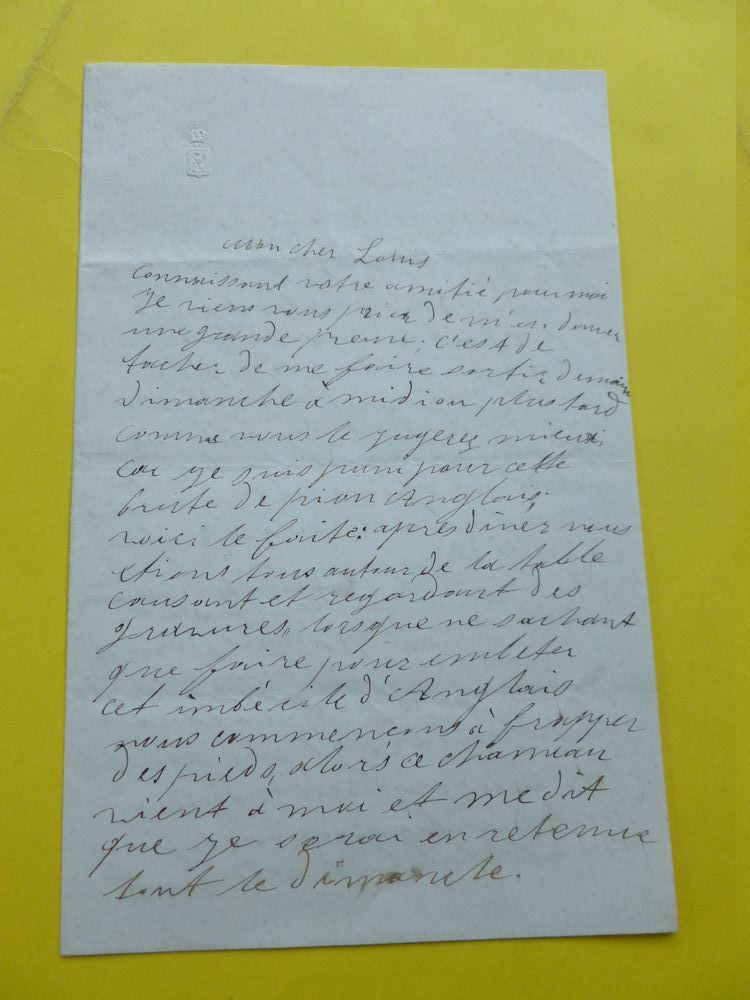 mon cher Louis
connaissant votre amitié pour moi
je viens vous prier de m'en donner
une grande preuve; c'est de
tacher de me faire sortir demain
dimanche à midi ou plus tard
comme vous le jugerez mieux,
car je suis puni pour cette
brute de pion Anglais.
voici le faite: après diner nous
etions tous autour de la table
causant et regardant des
gravures, lorsque ne sachant
que faire pour embeter
cet imbécile d'Anglais
nous commencons à frapper
des pieds, alors ce chameau
vient à moi et me dit
que je serai en retenue
tout le dimanche.